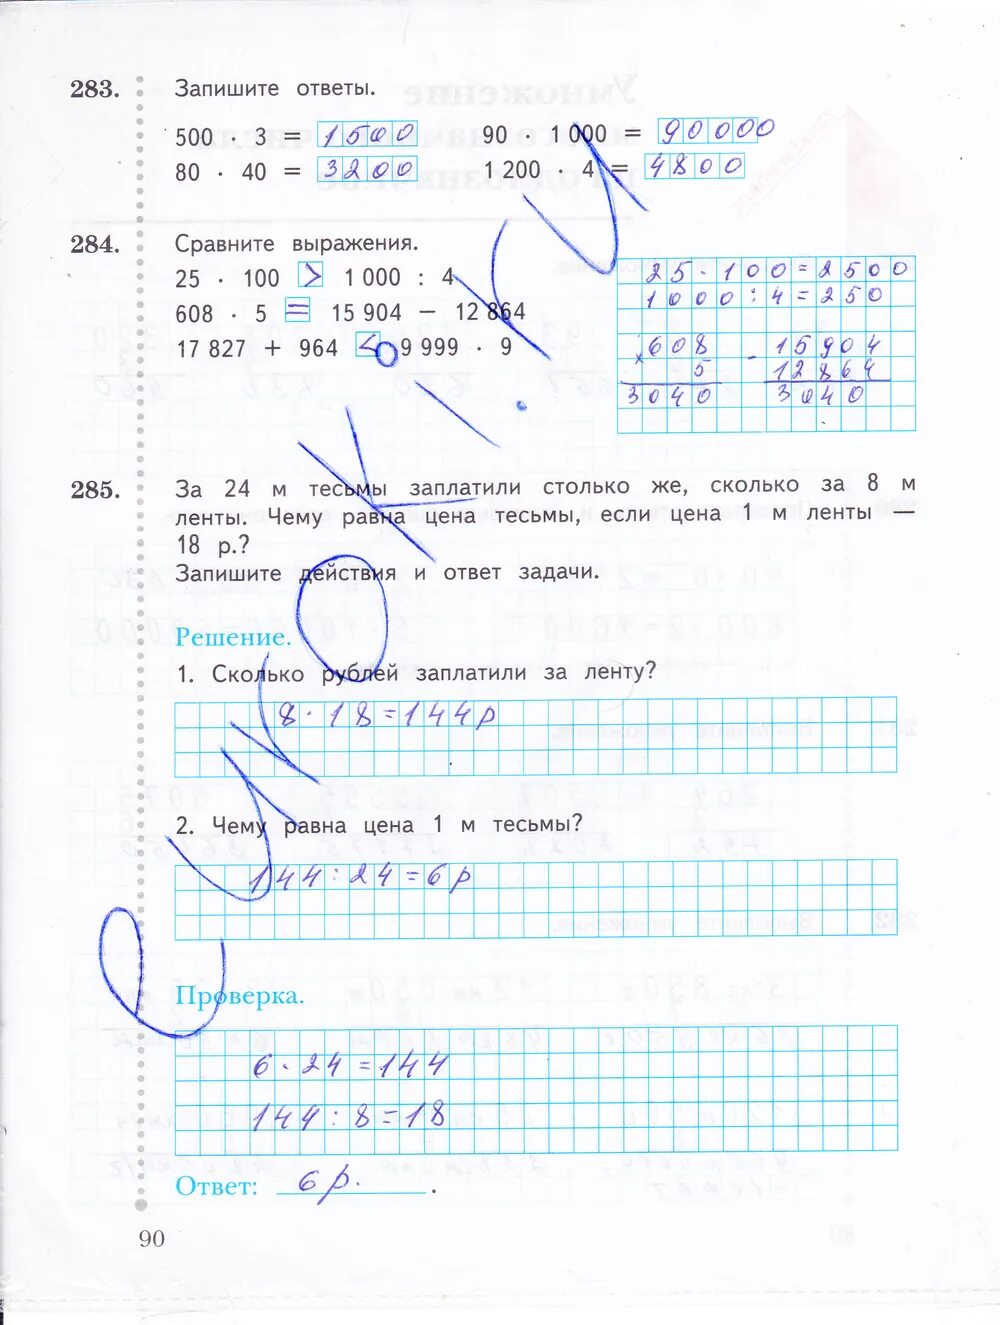 283. Запишите ответы.
500 · 3 = 1500 90 · 1 000 = 90000
80 · 40 = 3200 1 200 · 4 = 4800
284. Сравните выражения.
25 · 100 > 1 000 : 4
608 · 5 = 15 904 − 12 864
17 827 + 964 < 9 999 · 9
25·100=2500
1000:4=250
×608 -15904
5 12864
3040 3040
285. За 24 м тесьмы заплатили столько же, сколько за 8 м
ленты. Чему равна цена тесьмы, если цена 1 м ленты —
18 р.?
Запишите действия и ответ задачи.
Решение.
1. Сколько рублей заплатили за ленту?
8·18=144р
2. Чему равна цена 1 м тесьмы?
144:24=6р
Проверка.
6·24=144
144:8=18
Ответ: 6р.
90
eUrOKi.RU